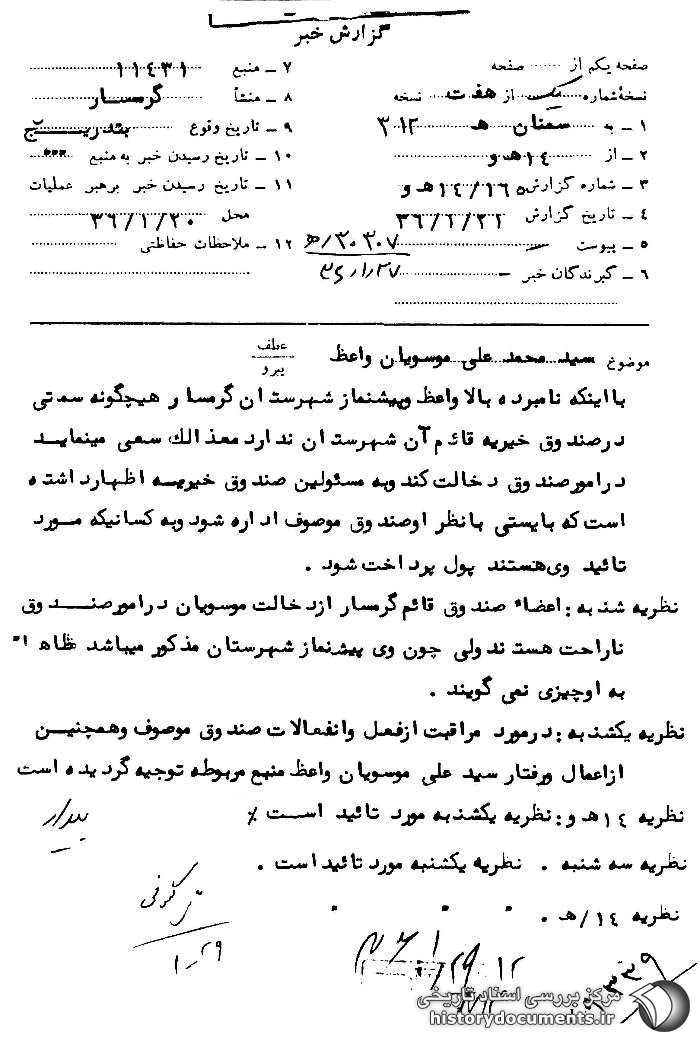 گزارش خبر
صفحه یکم از ........ صفحه
نسخهٔ شماره یک از هفت نسخه
۱ ـ به سمنان هـ ۳۱۲
۲ ـ از ۱۴هـ و
۳ ـ شماره گزارش ۱۴/۱۶۵هـ و
۴ ـ تاریخ گزارش ۳۶/۱/۲۱
۵ ـ پیوست ـ
۶ ـ گیرندگان خبر ـ
۷ ـ منبع ۱۱۴۳۱
۸ ـ منشأ گرمسار
۹ ـ تاریخ وقوع بتدریج
۱۰ ـ تاریخ رسیدن خبر به منبع
۱۱ ـ تاریخ رسیدن خبر برهبر عملیات
محل ۳۶/۱/۲۰
۱۲ ـ ملاحظات حفاظتی
۳۰۳۰۷/هـ
۳۶/۱/۲۷
موضوع سید محمد علی موسویان واعظ
عطف
پیرو
بااینکه نامبرده بالا واعظ وپیشنماز شهرستان گرمسار هیچگونه سمتی
درصندوق خیریه قائم آن شهرستان ندارد معذالک سعی مینماید
درامورصندوق دخالت کند وبه مسئولین صندوق خیریسه اظهارداشته
است که بایستی بانظر اوصندوق موصوف اداره شود وبه کسانیکه مورد
تائید وی هستند پول پرداخت شود .
نظریه شنبه : اعضاء صندوق قائم گرمسار ازدخالت موسویان درامورصندوق
ناراحت هستند ولی چون وی پیشنماز شهرستان مذکور میباشد ظاهراً
به اوچیزی نمی گویند .
نظریه یکشنبه : درمورد مراقبت ازفعل وانفعالات صندوق موصوف وهمچنین
ازاعمال ورفتار سید علی موسویان واعظ منبع مربوطه توجیه گردیده است
نظریه ۱۴هـ و : نظریه یکشنبه مورد تائید است ٪
نظریه سه شنبه . نظریه یکشنبه مورد تائید است .
نظریه ۱۴/هـ .
بیدار
۱ـ۲۹
مرکز بررسی اسناد تاریخی
historydocuments.ir